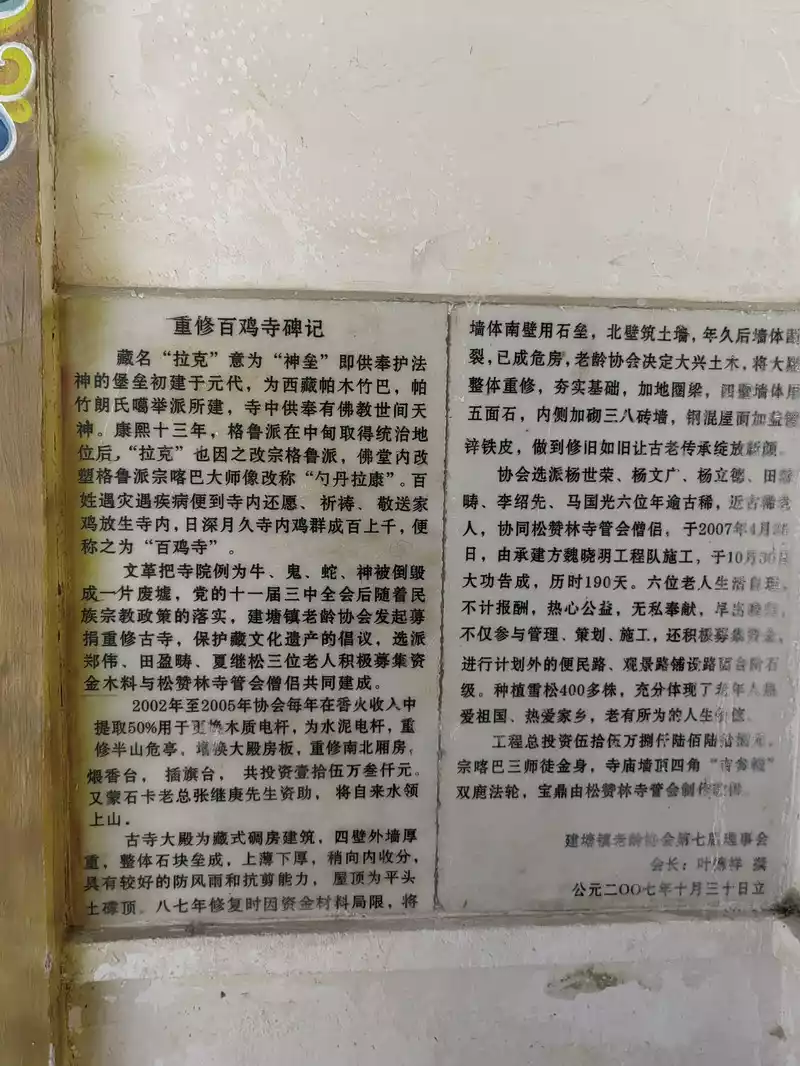 重修百鸡寺碑记
藏名“拉克”意为“神垒”即供奉护法
神的堡垒初建于元代，为西藏帕木竹巴，帕
竹朗氏噶举派所建，寺中供奉有佛教世间天
神。康熙十三年，格鲁派在中甸取得统治地
位后，“拉克”也因之改宗格鲁派，佛堂内改
塑格鲁派宗喀巴大师像改称“勺丹拉康”。百
姓遇灾遇疾病便到寺内还愿、祈祷、敬送家
鸡放生寺内，日深月久寺内鸡群成百上千，便
称之为“百鸡寺”。
文革把寺院例为牛、鬼、蛇、神被倒毁
成一片废墟，党的十一届三中全会后随着民
族宗教政策的落实，建塘镇老龄协会发起募
捐重修古寺，保护藏文化遗产的倡议，选派
郑伟、田盈畴、夏继松三位老人积极募集资
金木料与松赞林寺管会僧侣共同建成。
2002年至2005年协会每年在香火收入中
提取50%用于更换木质电杆，为水泥电杆，重
修半山危亭，增换大殿房板，重修南北厢房，
煨香台，插旗台，共投资壹拾伍万叁仟元。
又蒙石卡老总张继庚先生资助，将自来水领
上山。
古寺大殿为藏式碉房建筑，四壁外墙厚
重，整体石块垒成，上薄下厚，稍向内收分，
具有较好的防风雨和抗剪能力，屋顶为平头
土礃顶。八七年修复时因资金材料局限，将
墙体南壁用石垒，北壁筑土墙，年久后墙体
裂，已成危房，老龄协会决定大兴土木，将大殿
整体重修，夯实基础，加地圈梁，四壁墙体用
五面石，内侧加砌三八砖墙，钢混屋面加盖
锌铁皮，做到修旧如旧让古老传承绽放新颜。
协会选派杨世荣、杨文广、杨立德、田
畴、李绍先、马国光六位年逾古稀，近古稀老
人，协同松赞林寺管会僧侣，于2007年4月
日，由承建方魏晓明工程队施工，于10月30日
大功告成，历时190天。六位老人生活自理，
不计报酬，热心公益，无私奉献，早出晚
不仅参与管理、策划、施工，还积极募集资金，
进行计划外的便民路、观景路铺设路面台阶石
级。种植雪松400多株，充分体现了老年人
爱祖国、热爱家乡，老有所为的人生价值。
工程总投资伍拾伍万捌仟陆佰陆拾 元，
宗喀巴三师徒金身，寺庙墙顶四角“
双鹿法轮，宝鼎由松赞林寺管会制作
建塘镇老龄协会第七届理事会
会长：叶 祥 撰
公元二〇〇七年十月三十日立